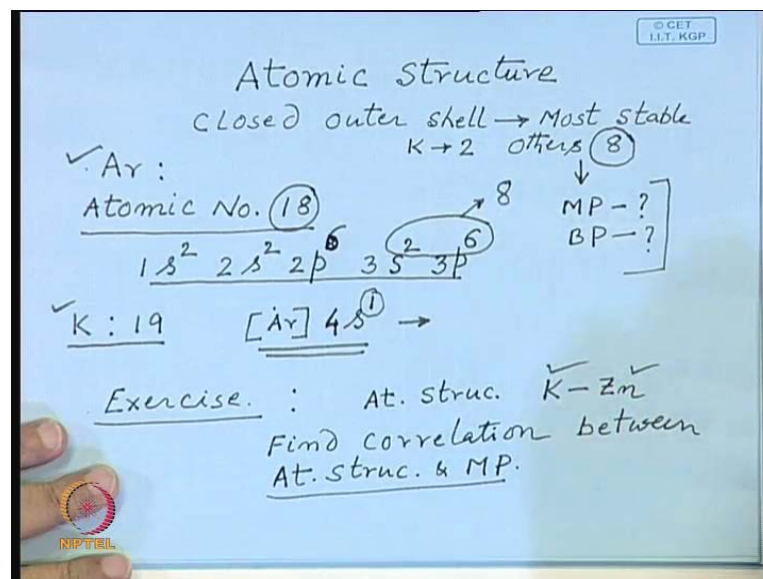 © CET
I.I.T. KGP
Atomic Structure
Closed outer shell → Most stable
K → 2 others 8
✓Ar:
Atomic No. 18
8
MP – ?
BP – ?
1s² 2s² 2p⁶ 3s² 3p⁶
✓K : 19 [Ar] 4s¹ →
Exercise. : At. struc. K – Zn
Find correlation between
At. struc. & MP.
NPTEL